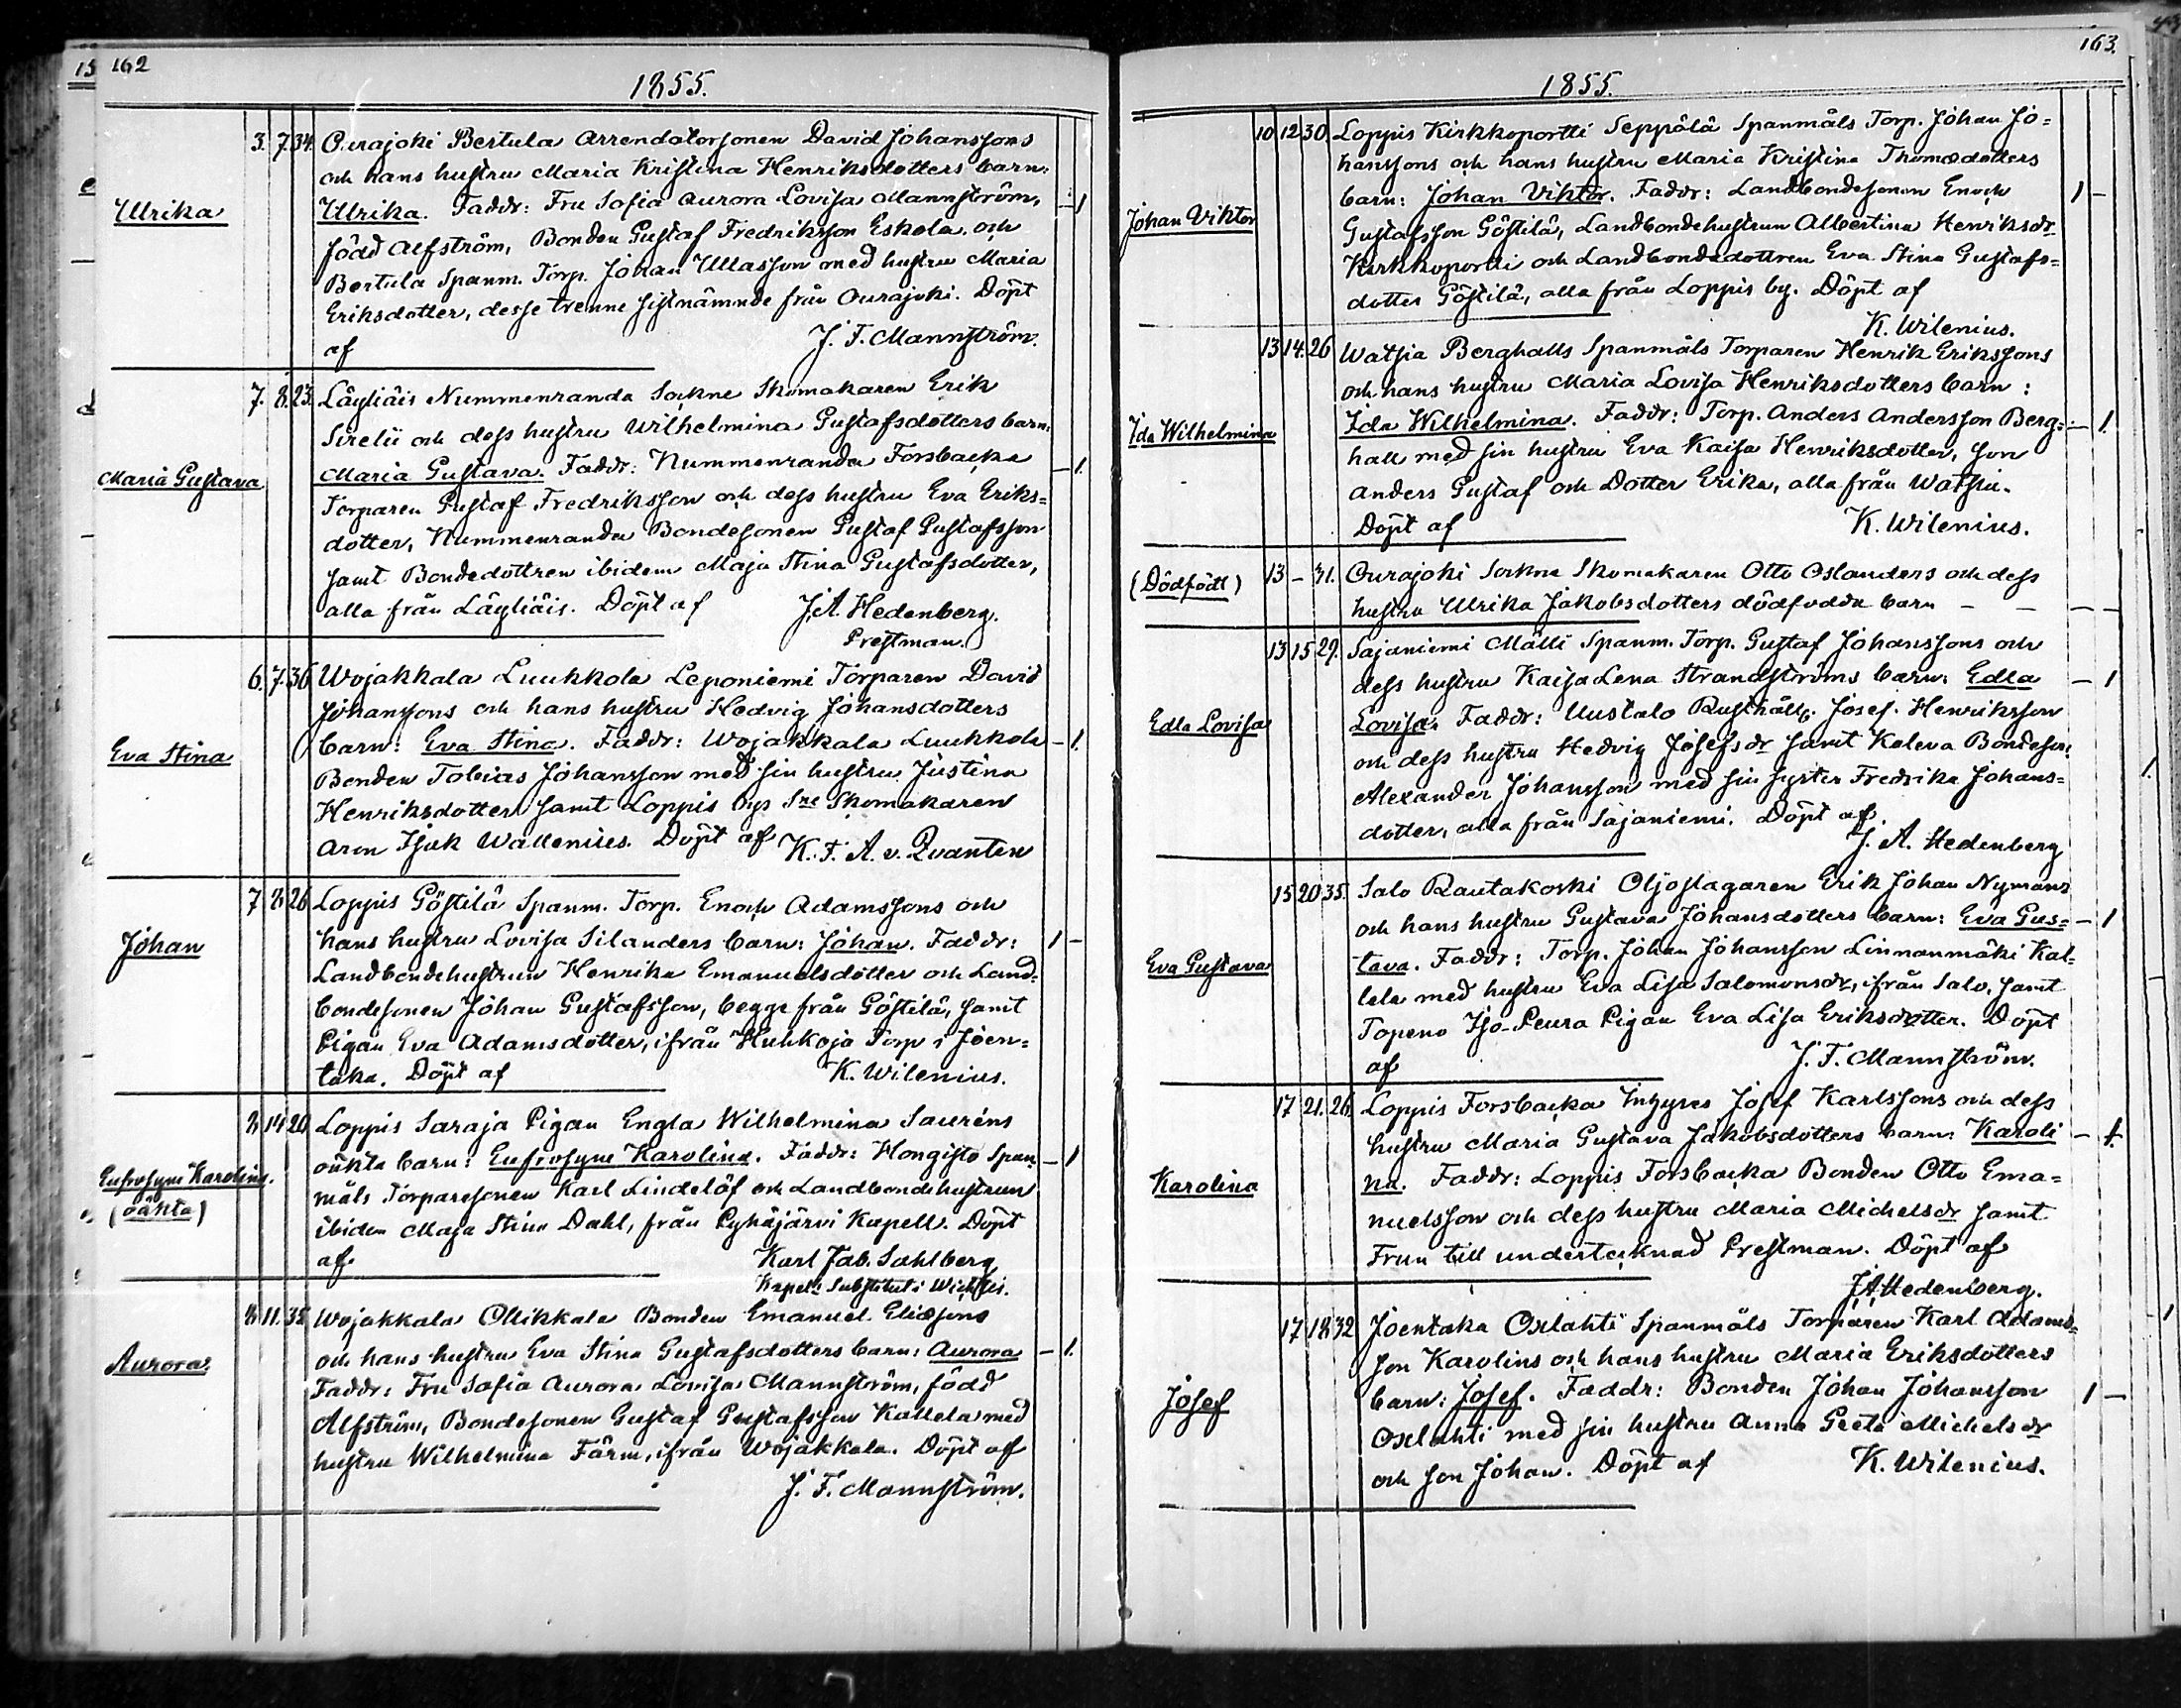 162
1855.
Ulrika
3. 7. 34. Ourajoki Bertula Arrendatorsonen David Johanssons
och hans hustru Maria Kristina Henriksdotters barn:
Ulrika. Faddr: Fru Sofia Aurora Lovisa Mannström, – 1
född Alfström, Bonden Gustaf Fredriksson Eskola, och
Bertula Spanm. Torp. Johan Ullasson med hustru Maria
Eriksdotter, desse trenne sistnämnde från Ourajoki. Döpt
af J. F. Mannström.
Maria Gustava
7. 8. 23. Läyliäis Nummenranda Sockne Skomakaren Erik
Sirelii och dess hustru Wilhelmina Gustafsdotters barn:
Maria Gustava. Faddr: Nummenranda Forsbacka – 1.
Torparen Gustaf Fredriksson och dess hustru Eva Eriks=
dotter, Nummenranda Bondesonen Gustaf Gustafsson
samt Bondedottren ibidem Maja Stina Gustafsdotter,
alla från Läyliäis. Döpt af J. A. Hedenberg.
Prestman.
Eva Stina
6. 7. 36 Wojakkala Luukkola Leponiemi Torparen David
Johanssons och hans hustru Hedvig Johansdotters
barn: Eva Stina. Faddr: Wojakkala Luukkola – 1.
Bonden Tobias Johansson med sin hustru Justina
Henriksdotter samt Loppis bys Sne Skomakaren
Aron Isak Wallenius. Döpt af K. F. A. v. Qvanten
Johan
7 8 26 Loppis Göstilä Spanm. Torp. Enoch Adamssons och
hans hustru Lovisa Silanders barn: Johan. Faddr: 1 –
Landbondehustrun Henrika Emanuelsdotter och Land=
bondesonen Johan Gustafsson, begge från Göstilä, samt
Pigan Eva Adamsdotter, ifrån Huhkoja Torp i Joen=
taka. Döpt af K. Wilenius.
Eufrosyne Karolina.
(oäkta)
8 14 20 Loppis Saraja Pigan Engla Wilhelmina Sauréns
oäkta barn: Eufrosyne Karolina. Faddr: Hongisto Span= – 1
måls Torparesonen Karl Lindelöf och Landbondehustrun
ibidem Maja Stina Dahl, från Pyhäjärvi Kapell. Döpt
af Karl Fab. Sahlberg
Kapell: Substitut i Wichtis.
Aurora.
8 11. 38 Wojakkala Ollikkala Bonden Emanuel Eliæsons
och hans hustru Eva Stina Gustafsdotters barn: Aurora – 1.
Faddr: Fru Sofia Aurora Lovisa Mannström, född
Alfström, Bondesonen Gustaf Gustafsson Kallela med
hustru Wilhelmina Färm, ifrån Wojakkala. Döpt af
J. F. Mannström.
163.
1855.
Johan Viktor
10 12 30. Loppis Kirkkoportti Seppälä Spanmåls Torp. Johan Jo=
hanssons och hans hustru Maria Kristina Thomædotters
barn: Johan Viktor. Faddr: Landbondesonen Enoch 1 –
Gustafsson Göstilä, Landbondehustrun Albertina Henriksdr
Kirkkoportti och Landbondedottren Eva Stina Gustafs=
dotter Göstilä, alla från Loppis by. Döpt af
K. Wilenius.
Ida Wilhelmina
13 14. 26 Watsia Berghalls Spanmåls Torparen Henrik Erikssons
och hans hustru Maria Lovisa Henriksdotters barn:
Ida Wilhelmina. Faddr: Torp. Anders Andersson Berg= – 1.
hall med sin hustru Eva Kaisa Henriksdotter, Son
Anders Gustaf och Dotter Erika, alla från Watsia.
Döpt af K. Wilenius.
(Dödfödt)
13 – 31. Ourajoki Sockne Skomakaren Otto Oslanders och dess
hustru Ulrika Jakobsdotters dödfödda barn – – – –
Edla Lovisa
13 15 29. Sajaniemi Mälli Spanm. Torp. Gustaf Johanssons och
dess hustru Kaisa Lena Strandströms barn: Edla – 1
Lovisa. Faddr: Uustalo Rusthåll. Josef Henriksson
och dess hustru Hedvig Josefsdr samt Kaleva Bondeson:
Alexander Johansson med sin syster Fredrika Johans=
dotter, alla från Sajaniemi. Döpt af
J. A. Hedenberg
Eva Gustava
15 20 35. Salo Rautakoski Oljeslagaren Erik Johan Nymans
och hans hustru Gustava Johansdotters barn: Eva Gus= – 1
tava. Faddr: Torp. Johan Johansson Linnanmäki Kal=
lela med hustru Eva Lisa Salomonsdr, ifrån Salo, samt
Topeno Iso-Peura Pigan Eva Lisa Eriksdotter. Döpt
af J. F. Mannström.
Karolina
17 21. 26. Loppis Forsbacka Inhyses Josef Karlssons och dess
hustru Maria Gustava Jakobsdotters barn: Karoli – 1.
na. Faddr: Loppis Forsbacka Bonden Otto Ema=
nuelsson och dess hustru Maria Michelsdr samt
Frun till undertecknad Prestman. Döpt af
J A Hedenberg.
Josef
17 18 32 Joentaka Oxlahti Spanmåls Torparen Karl Adams=
son Karolins och hans hustru Maria Eriksdotters
barn: Josef. Faddr: Bonden Johan Johansson 1 –
Oxlahti med sin hustru Anna Greta Michelsdr
och Son Johan. Döpt af K. Wilenius.